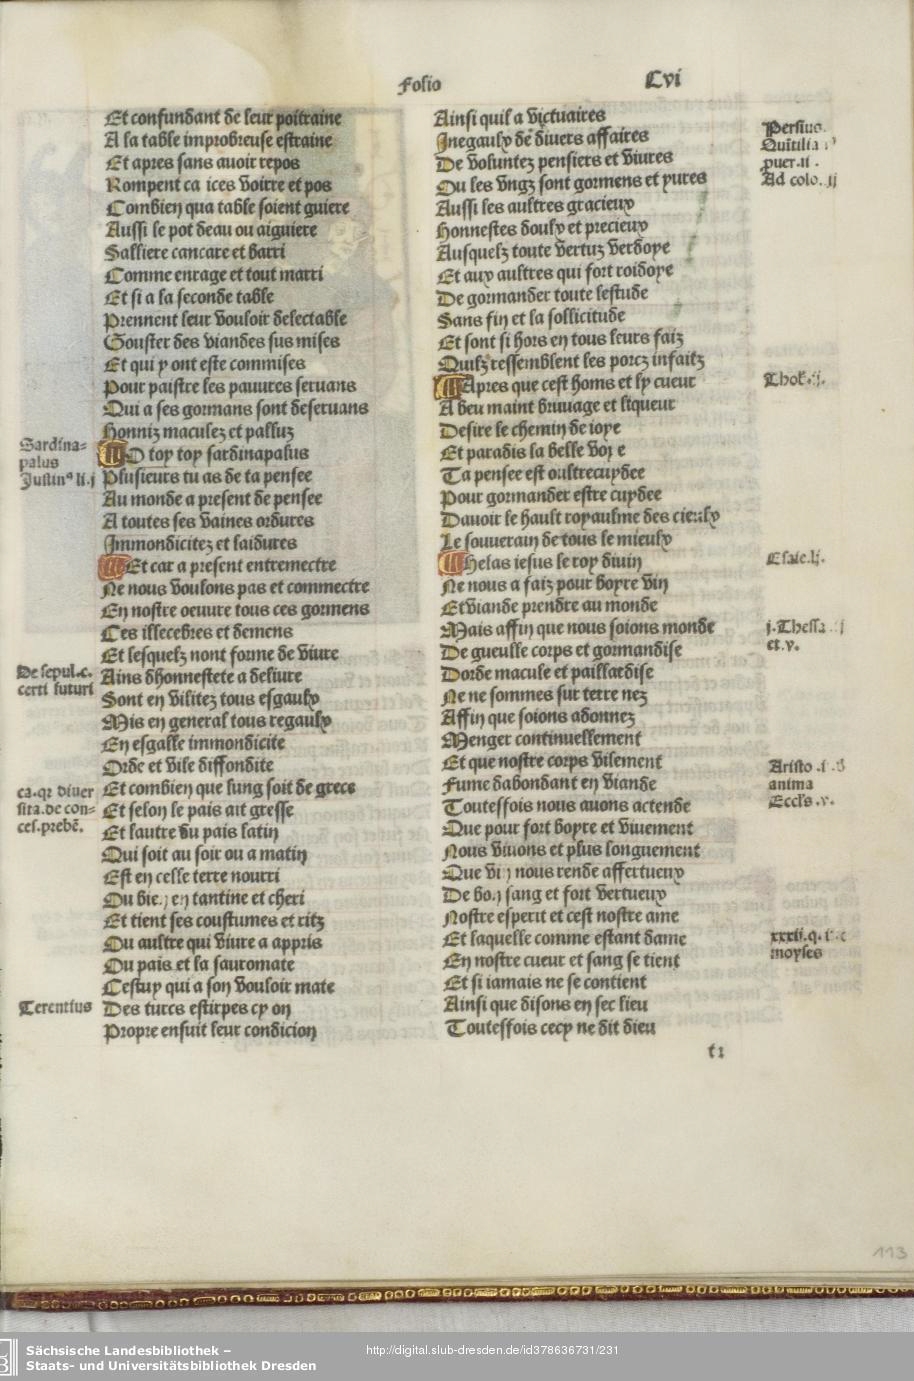 Folio
Cvi
Et confundant de leur poitraine
A la table improbreuse estraine
Et apres sans auoir repos
Rompent ca ices voirre et pos
Combien qua table soient guiere
Aussi le pot deau ou aiguiere
Salliere cancare et barri
Comme enrage et tout marri
Et si a la seconde table
Prennent leur vouloir delectable
Gouster des viandes sus mises
Et qui y ont este commises
Pour paistre les pauures seruans
Qui a ses gormans sont deseruans
Honniz maculez et palluz
O toy toy sardinapalus
Plusieurs tu as de ta pensee
Au monde a present de pensee
A toutes ses vaines ordures
Immondicitez et laidures
Et car a present entremectre
Ne nous voulons pas et commectre
En nostre oeuure tous ces gormens
Ces illecebres et demens
Et lesquelz nont forme de viure
Ains dhonnestete a deliure
Sont en vilitez tous esgaulx
Mis en general tous regaulx
En esgalle immondicite
Orde et vile diffondite
Et combien que lung soit de grece
Et selon le pais art gresse
Et lautre du pais latin
Qui soit au soir ou a matin
Est en celle terre nourri
Ou bie. en tantine et cheri
Et tient ses coustumes et ritz
Ou aultre qui viure a appris
Ou pais et la sauromate
Cestuy qui a son vouloir mate
Des turcs estirpes cy on
Propre ensuit leur condicion
Sardina-
palus
Justinꝰ li.j
De sepul.c.
certi futuri
ca.qr diuer
sita.de con-
ces.prebē.
Terentius
Ainsi quil a victuaires
Inegaulx de diuers affaires
De voluntez pensiers et viures
Ou les vngz sont gormens et yures
Aussi les aultres gracieux
Honnestes doulx et precieux
Ausquelz toute vertuz verdoye
Et aux aultres qui fort roidoye
De gormander toute lestude
Sans fin et la sollicitude
Et sont si hors en tous leurs faiz
Quilz ressemblent les porcz infaitz
Apres que cest homs et ly cueur
A beu maint bruuage et liqueur
Desire le chemin de ioye
Et paradis la belle voy e
Ta pensee est oultrecuydee
Pour gormander estre cuydee
Dauoir le hault royaulme des cieulx
Le souuerain de tous le mieulx
Helas iesus le roy diuin
Ne nous a faiz pour boyre vin
Et viande prendre au monde
Mais affin que nous soions monde
De gueulle corps et gormandise
Dorde macule et paillardise
Ne ne sommes sur terre nez
Affin que soions adonnez
Menger continuellement
Et que nostre corps vilement
Fume dabondant en viande
Toutesfois nous auons actende
Que pour fort boyre et viuement
Nous viuons et plus longuement
Que vi nous rende affertueux
De bo. sang et fort vertueux
Nostre esperit et cest nostre ame
Et laquelle comme estant dame
En nostre cueur et sang se tient
Et si iamais ne se contient
Ainsi que disons en sec lieu
Toutesfois cecy ne dit dieu
Persius.
Quītilia
puer.ii.
Ad colo. ij
Thob.ij.
Esaie.lj.
j.Thessa
et.v.
Aristo
anima
Eccls.v.
xxxij.q.
moyses
113
Sächsische Landesbibliothek –
Staats- und Universitätsbibliothek Dresden
http://digital.slub-dresden.de/id378636731/231